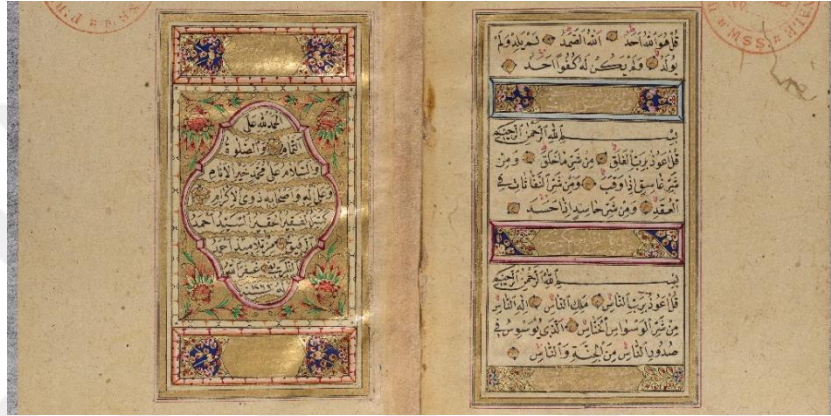 قُلْ هُوَ اللهُ اَحَدٌ اَللهُ الصَّمَدُ لَمْ يَلِدْ وَلَمْ
يُولَدْ وَلَمْ يَكُنْ لَهُ كُفُوًا اَحَدٌ
بِسْمِ اللهِ الرَّحْمٰنِ الرَّحِيمِ
قُلْ اَعُوذُ بِرَبِّ الْفَلَقِ مِنْ شَرِّ مَا خَلَقَ وَمِنْ
شَرِّ غَاسِقٍ اِذَا وَقَبَ وَمِنْ شَرِّ النَّفَّاثَاتِ فِي
الْعُقَدِ وَمِنْ شَرِّ حَاسِدٍ اِذَا حَسَدَ
بِسْمِ اللهِ الرَّحْمٰنِ الرَّحِيمِ
قُلْ اَعُوذُ بِرَبِّ النَّاسِ مَلِكِ النَّاسِ اِلٰهِ النَّاسِ
مِنْ شَرِّ الْوَسْوَاسِ الْخَنَّاسِ اَلَّذِي يُوَسْوِسُ فِي
صُدُورِ النَّاسِ مِنَ الْجِنَّةِ وَالنَّاسِ
الحمد لله على
التمام والصلوة
والسلام على محمد خير الانام
وعلى اله واصحابه ذوى الاكرام
كتبه الفقير احقر السيد احمد
من تلاميذ احمد
غفر